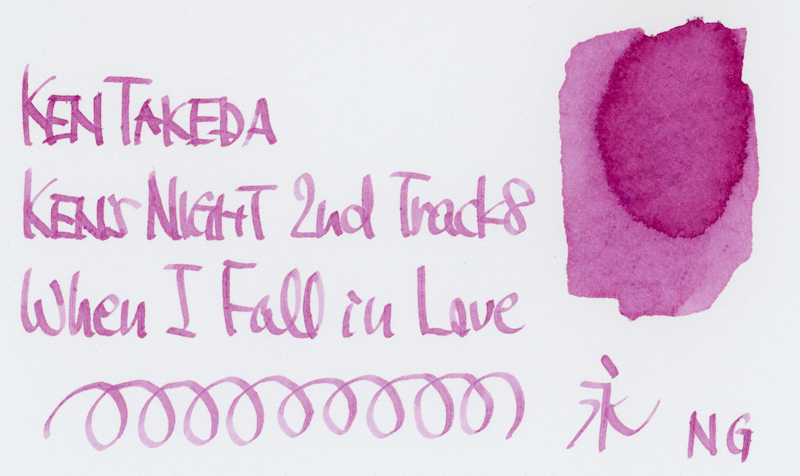 KEN TAKEDA
KEN'S NIGHT 2nd Track8
When I Fall in Love
永 NG